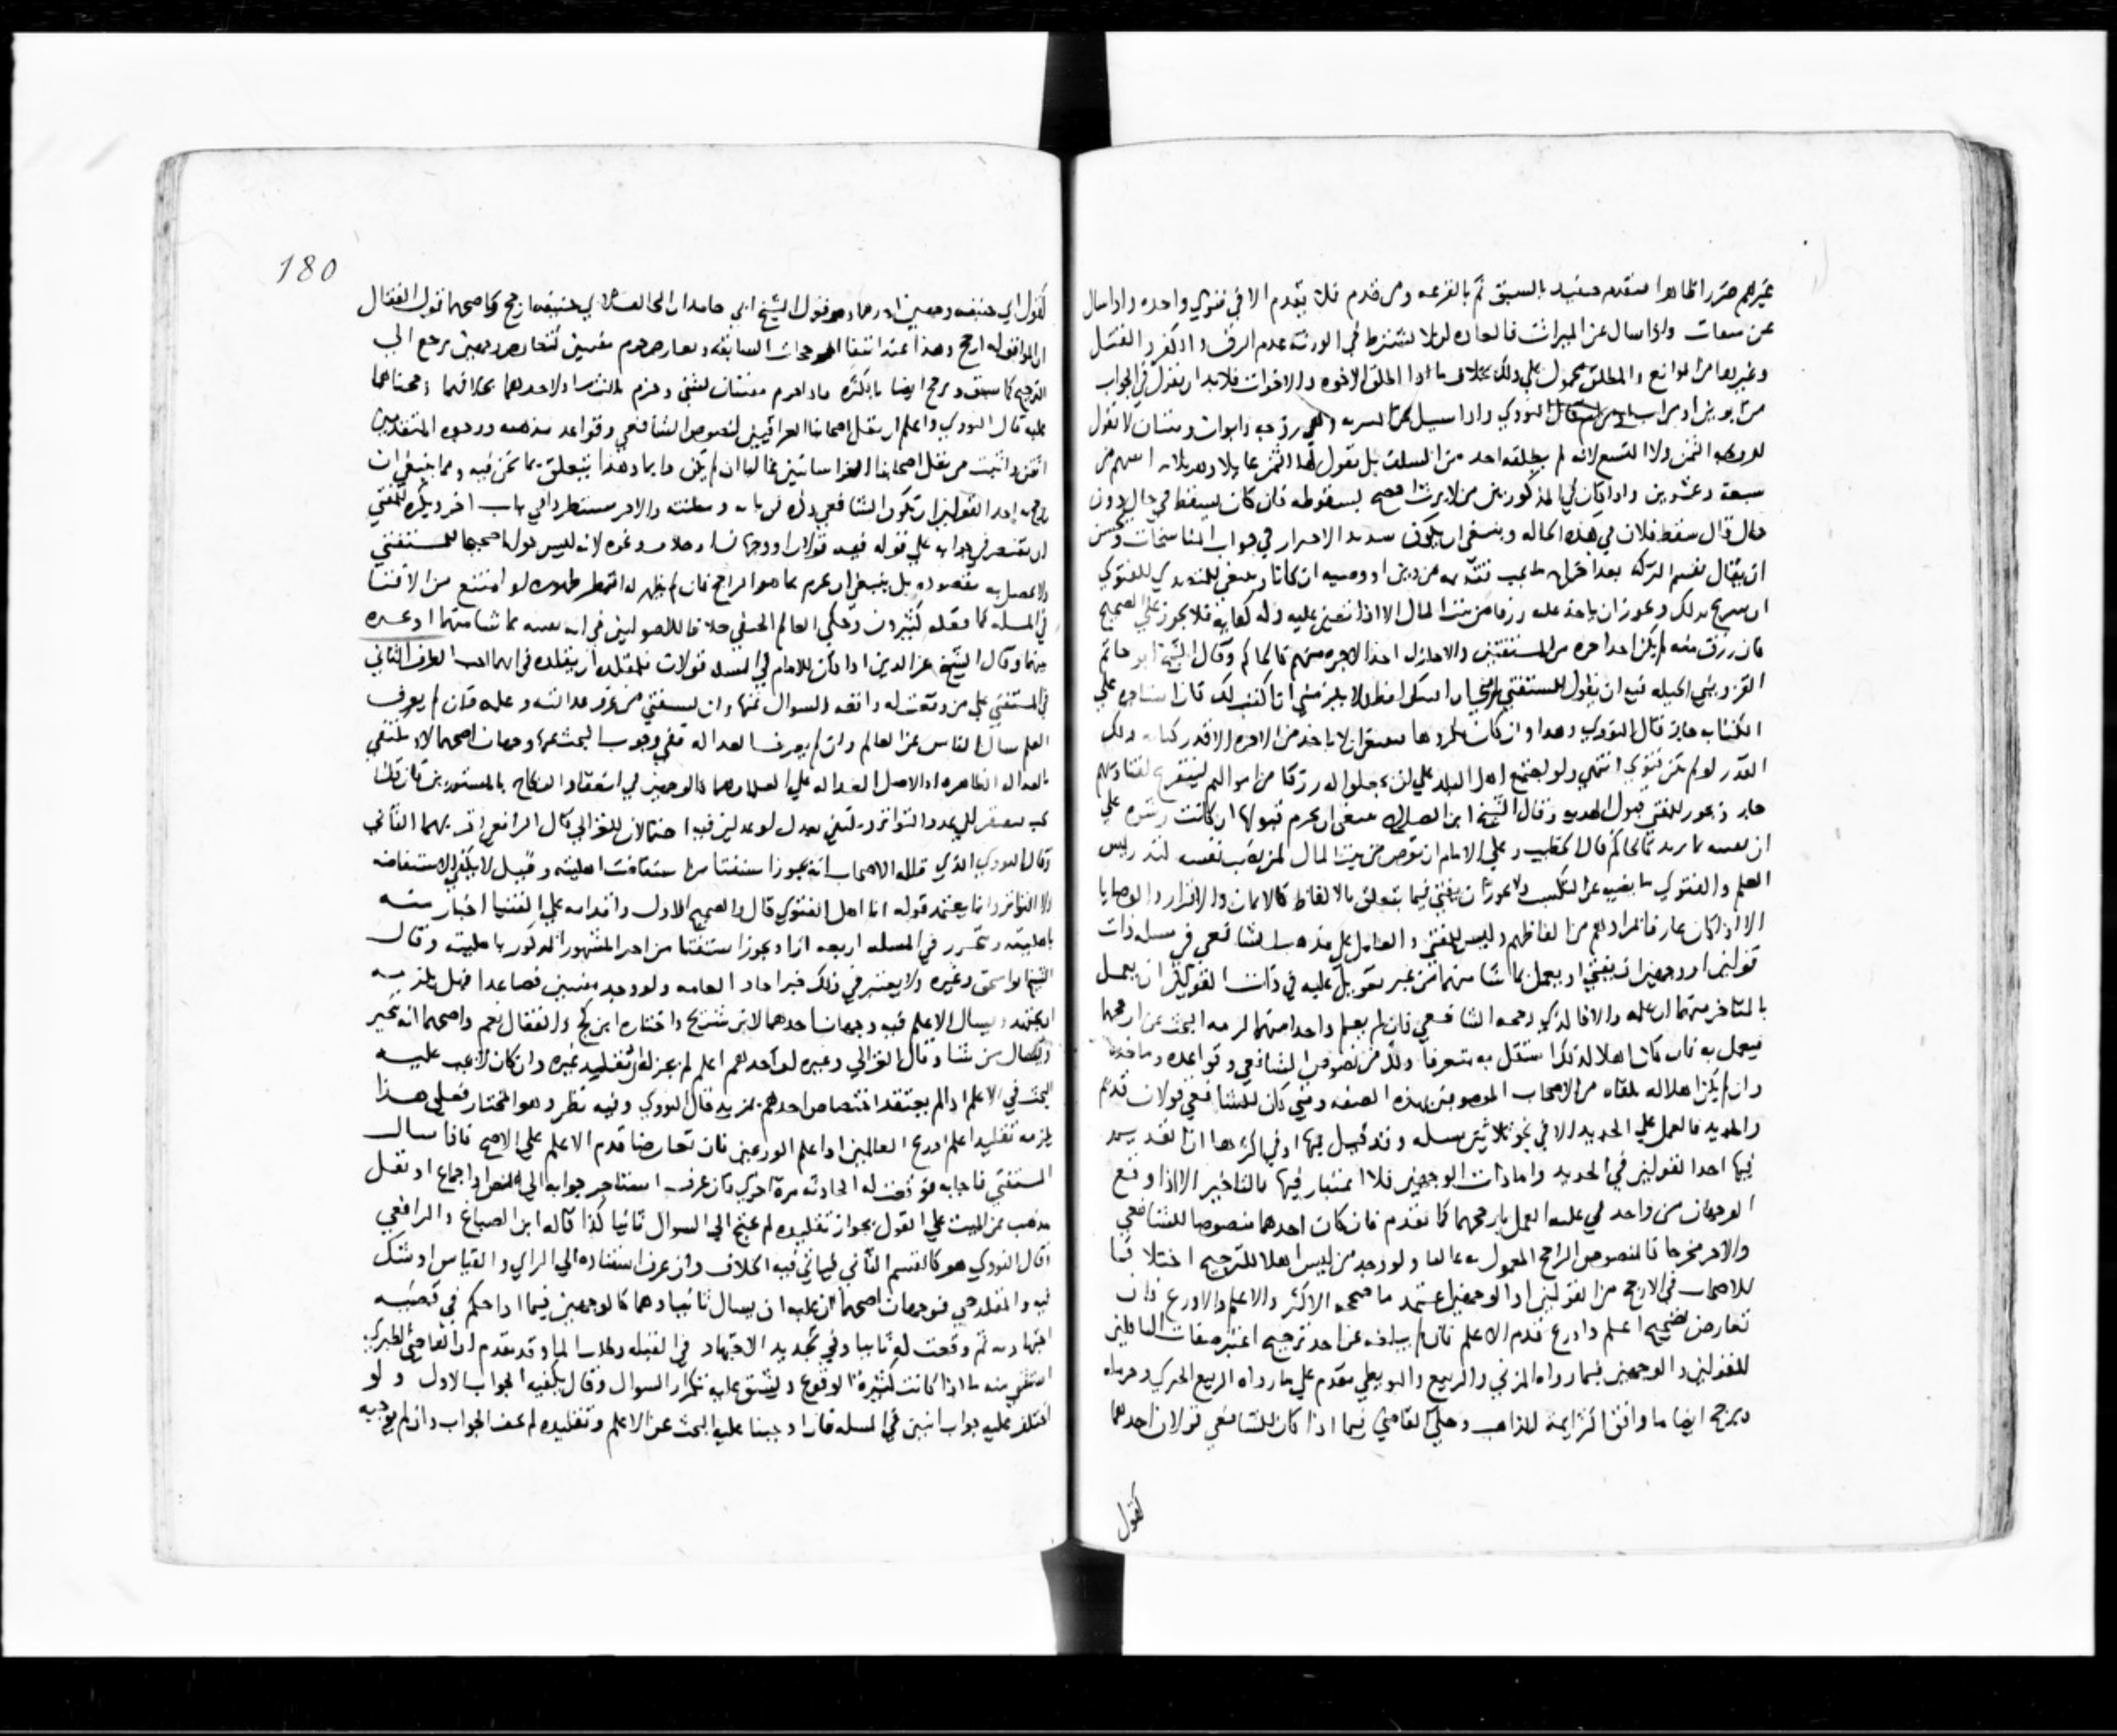 غيرهم ضرر ظاهرا بتقديمه فيقيد بالسبق ثم بالقرعه ومن قدم فلا يقدم الا في فتوي واحده واذا سال
عن واذا سال عن الميراث فالعاده ان لا يشترط في الورثه عدم الرق والكفر والقتل
وغيرها من الموانع والمطلق محمول علي ذلك بخلاف ما اذا اطلق الاخوه والاخوات فلا بد ان يقول في الجواب
من ابوين او من اب او من ام قال النووي واذا سيل عن المنبريه وهي زوجه وابوان وبنتان لا يقول
للزوجه الثمن ولا التسع لانه لم يطلقه احد من السلف بل يقول لها الثمن عايلا وهو ثلاثه اسهم من
سبعة وعشرين واذا كان في المذكورين من لا يرث افصح بسقوطه فان كان يسقط في حال دون
حال قال سقط فلان في هذه الحاله وينبغي ان يكون شديد الاحتراز في جواب المناسخات ويحسن
ان يقال تقسم التركه بعد اخراج ما يجب تقديمه من دين او وصيه ان كانا وينبغي للمتصدي للفتوي
ان يتبرع بذلك ويجوز ان ياخذ عليه رزقا من بيت المال الا اذا تعين عليه وله كفايه فلا يجوز علي الصحيح
فان رزق منه لم يكن له اخذ اجره من المستفتين والا جاز له اخذ الاجره منهم كالحاكم وقال الشيخ ابو حاتم
القزويني في الحيله فيه ان يقول للمستفتي يلزمني ان افتيك لفظا ولا يلزمني ان اكتب لك فان استاجره علي
الكتاب جاز قال النووي وهذا وان كان مكروها فينبغي ان لا ياخذ من الاجره الا قدر كتابه ذلك
القدر لو لم تكن فتوي انتهي ولو اجتمع اهل البلد علي ان يجعلوا له رزقا من اموالهم ليتفرغ لفتاويهم
جاز ويجوز للمفتي قبول الهديه وقال الشيخ ابن الصلاح ينبغي ان يحرم قبولها ان كانت رشوه علي
ان يفتيه بما يريد كالحاكم قال الخطيب وعلي الامام ان يفرض من بيت المال لمن نصب نفسه لتدريس
العلم والفتوي ما يغنيه عن التكسب ولا يجوز ان يفتي فيما يتعلق بالالفاظ كالايمان والاقرار والوصايا
الا اذا كان عارفا بمرادهم من الفاظهم وليس للمفتي والعامل علي مذهب الشافعي في مسله ذات
قولين او وجهين ان يفتي او يعمل بما شا منهما من غير نظر بل عليه في ذات القولين ان يعمل
بالمتاخر منهما ان علمه والا فالذي رجحه الشافعي فان لم يعلم واحدا منهما لزمه البحث عن ارجحهما
فيعمل به فان كان اهلا لذلك استقل به متعرفا ذلك من نصوص الشافعي وقواعده وماخذه
وان لم يكن اهلا له نقله من الاصحاب الموصوفين بهذه الصفه ومتي كان للشافعي قولان قديم
والجديد فالعمل علي الجديد الا في نحو ثلاثين مسله وقد قيل فيها او في اكثرها ان القديم
فيها احد القولين في الجديد واما ذات الوجهين فلا اعتبار فيها بالتاخير الا اذا وقع
الوجهان من واحد بل عليه العمل بارجحهما كما تقدم فان كان احدهما منصوصا للشافعي
والاخر مخرجا فالمنصوص الراجح المعمول به غالبا ولو وجد من ليس اهلا للترجيح اختلافا
للاصحاب في الارجح من القولين او الوجهين اعتمد ما صححه الاكثر والاعلم والاورع فان
تعارض تصحيح اعلم واورع قدم الاعلم فان لم يبلغه عن احد ترجيح اعتبر صفات الناقلين
للقولين والوجهين فيما رواه المزني والربيع والبويطي مقدم علي ما رواه الربيع الجيزي وحرمله
ويرجح ايضا ما وافق اكثر ايمة المذاهب وحكي القاضي فيما اذا كان للشافعي قولان احدهما
كقول
180
كقول ابي حنيفه وجهين احدهما وهو قول الشيخ ابي حامد ان المخالف لابي حنيفه ارجح واصحهما قول القفال
ان الموافق له ارجح وهذا عند انتفا المرجحات السابقه وتعارض جزم مصنفين كتعارض وجهين يرجع الي
الترجيح كما سبق ويرجح ايضا بالكثره فاذا جزم مصنفان بشي وجزم ثالث او احدهما بخلافهما رجحناهما
عليه قال النووي واعلم ان نقل اصحابنا العراقيين لنصوص الشافعي وقواعد مذهبه ووجوه المتقدمين
اتقن واثبت من نقل اصحابنا الخراسانيين غالبا ان لم يكن دايما وهذا يتعلق بما نحن فيه ومما ينبغي ان
يرجح به احد القولين ان يكون الشافعي ذكره في بابه ومظنته والاخر مستطردا في باب اخر ويكره للمفتي
ان يقتصر في جوابه علي قوله فيه قولان او وجهان او خلاف ونحوه لانه ليس جوابا صحيحا للمستفتي
ولا يحصل به مقصوده بل ينبغي ان يجزم بما هو الراجح فان لم يظهر له انتظر ظهوره او امتنع من الافتا
في المسله كما فعله كثيرون وحكي العالم الحنفي خلافا للاصوليين في انه يفتيه بما شا منهما او يخيره
بينهما وقال الشيخ عز الدين اذا كان للامام في المسله قولان فلمقلده ان يقلده في ايهما احب الطرف الثاني
في المستفتي علي من وقعت له واقعه السوال عنها وان يستفتي من عرف عدالته وعلمه فان لم يعرف
العلم سال الناس عن العالم وان لم يعرف العداله ففي وجوب البحث عنها وجهان اصحهما لا ويكتفي
بالعداله الظاهره اذ الاصل العداله علي العلما وهما كالوجهين في انعقاد النكاح بالمستورين فان قلنا
يجب فيفتقر الي عدد التواتر ويكتفي بعدل او عدلين فيه احتمالان للغزالي قال الرافعي اقربهما الثاني
وقال النووي الذي قاله الاصحاب انه يجوز استفتا من استفاضت اهليته وقيل لا تكفي الاستفاضه
ولا التواتر وانما يعتمد قوله انا اهل للفتوي قال والصحيح الاول واقدامه علي الفتيا اخبار منه
باهليته وتحرر في المسله اربعه ارا ويجوز استفتا من اخبر المشهور المذكور باهليته وقال
الشيخ ابو اسحق وغيره ولا يعتبر في ذلك خبر احاد العامه ولو وجد مفتيين فصاعدا فهل يلزمه
ان يجتهد ويسال الاعلم فيه وجهان احدهما لابن سريج واختاره ابن كج والقفال نعم واصحهما انه يتخير
ويسال من شا وقال الغزالي وغيره لو احدهم اعلم لم يجز له تقليد غيره وان كان لا يجب عليه
البحث في الاعلم اذا لم يعتقد اختصاص احدهم بمزيد قال النووي وفيه نظر وهو المختار فعلي هذا
يلزمه تقليد اعلم اورع العالمين او اعلم الورعين فان تعارضا قدم الاعلم علي الاصح فاذا سال
المستفتي فاجابه ثم وقعت له الحادثه مرة اخري فان عرف استناد جوابه الي نص او اجماع او نقل
مذهب عن الميت علي القول بجواز تقليده لم يحتج الي السوال ثانيا كذا قاله ابن الصباغ والرافعي
وقال النووي هو كالقسم الثاني فياتي فيه الخلاف وان عرف استناده الي الراي والقياس او شك
فيه والمقلد حي فوجهان اصحهما ان عليه ان يسال ثانيا وهما كالوجهين فيما اذا حكم في قضيه
اجتهاديه ثم وقعت له ثانيا وفي تجديد الاجتهاد في القبله وطلب الما وقد تقدم ان القاضي الطبري
استثني منه ما اذا كانت كثيرة الوقوع ويشق عليه تكرار السوال وقال يكفيه الجواب الاول ولو
اختلف عليه جواب اثنين في المسله فان اوجبنا عليه البحث عن الاعلم وتقليده لم يخف الجواب وان لم نوجبه